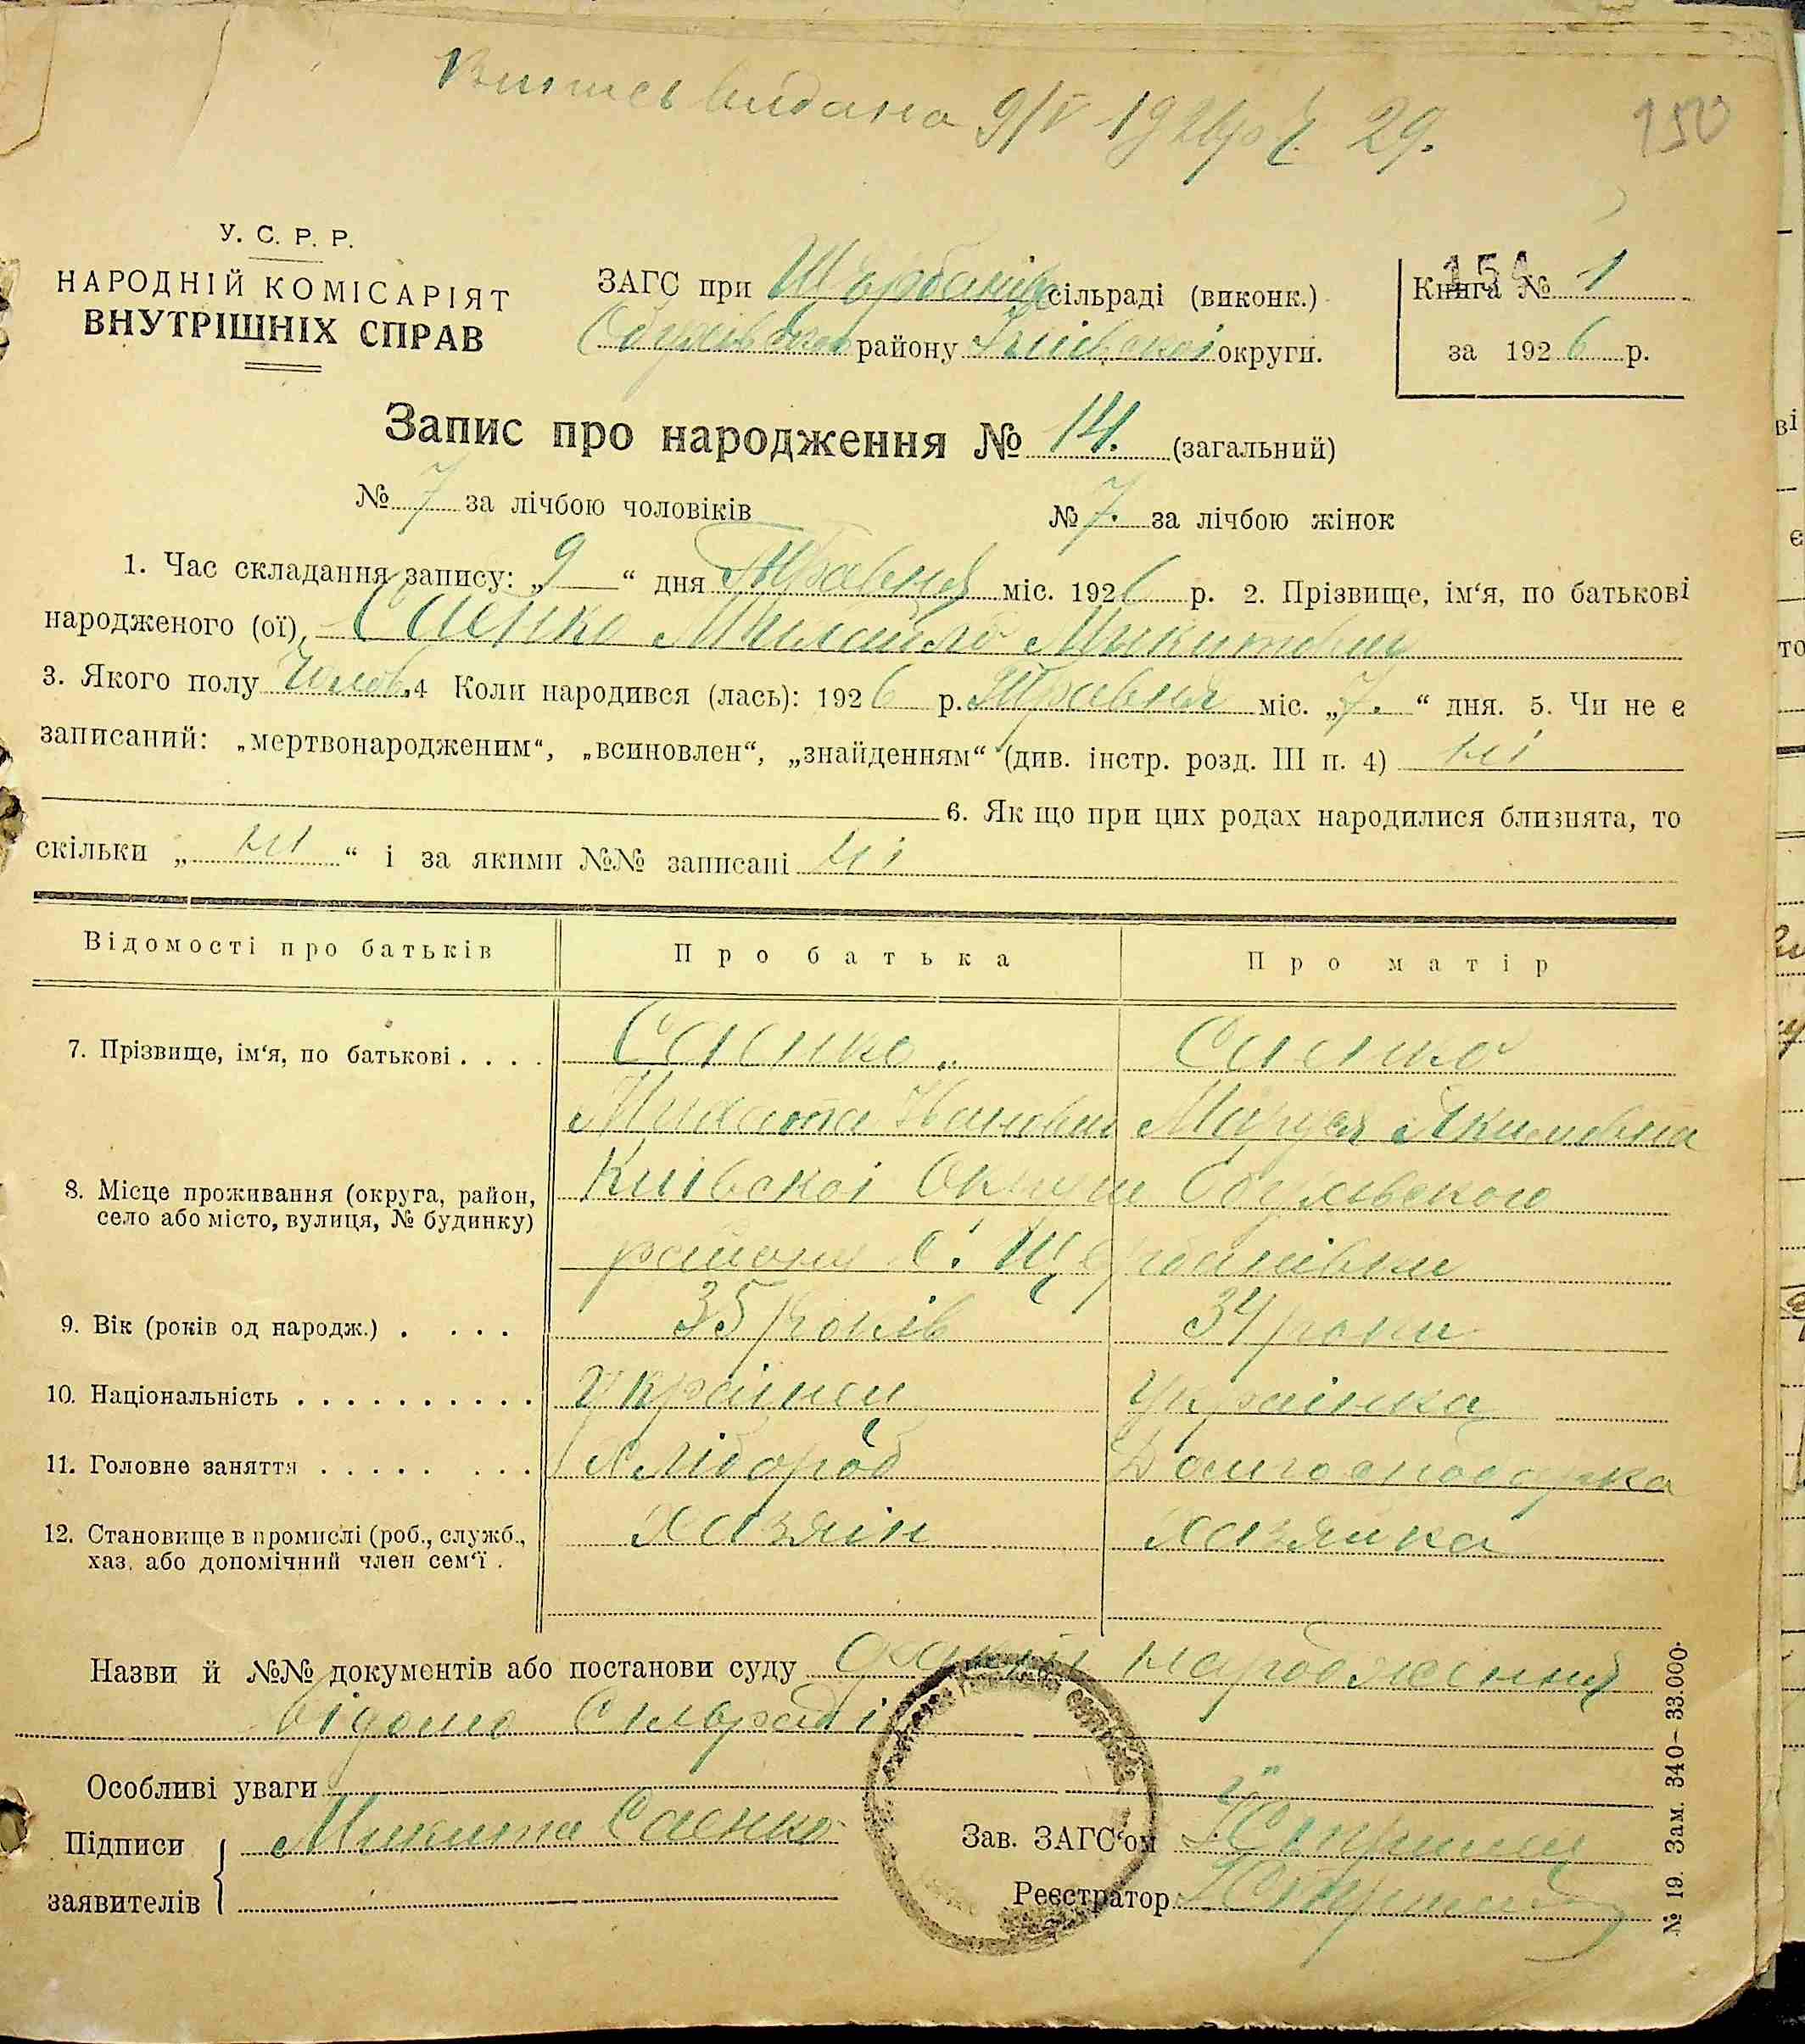 Витись видана 9/V 1926 р. № 29.
150
У. С. Р. Р.
НАРОДНІЙ КОМІСАРІЯТ
ВНУТРІШНІХ СПРАВ
ЗАГС при Щербанів сільраді (виконк.)
Обухівського району Київської округи.
154
Книга № 1
за 1926 р.
Запис про народження № 14. (загальний)
№ 7 за лічбою чоловіків
№ 7. за лічбою жінок
1. Час складання запису: „9“ дня Травня міс. 1926 р. 2. Прізвище, ім‘я, по батькові
народженого (ої) Саенко Михайло Микитович
3. Якого полу Чолов. 4 Коли народився (лась): 1926 р. Травня міс. „7.“ дня. 5. Чи не є
записаний: „мертвонародженим“, „всиновлен“, „знайденням“ (див. інстр. розд. III п. 4) ні
6. Як що при цих родах народилися близнята, то
скільки „ні“ і за якими №№ записані ні
Відомості про батьків
Про батька
Про матір
7. Прізвище, ім‘я, по батькові
Саенко
Саенко
Микита
Маруся Якимовна
8. Місце проживання (округа, район,
село або місто, вулиця, № будинку)
Київскої Округи Обухівского
району с. Щербанівки
9. Вік (років од народж.)
35 років
34 роки
10. Національність
Украінец
Украінка
11. Головне заняття
Хлібороб
Домгосподарка
12. Становище в промислі (роб., служб.,
хаз. або допомічний член сем‘ї .
хазяін
хазяйка
Назви й №№ документів або постанови суду народження
відомо Сильраді
Особливі уваги
Підписи
заявителів
Микита Саенко
Зав. ЗАГС‘ом
Реєстратор
№ 19. Зам. 340— 33.000.